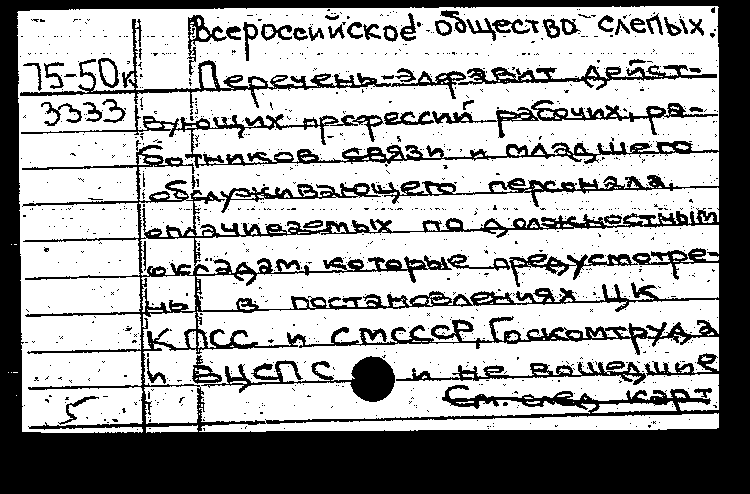 Всероссийское общество слепых.
75-50к Перечень-алфавит дейст-
3333 вующих профессий рабочих, ра-
ботников связи и младшего
обслуживающего персонала,
оплачиваемых по должностным
окладам, которые предусмотре-
ны в постановлениях ЦК
КПСС и СМСССР, Госкомтруда
и ВЦСПС и не вошедшие
5 См. след карт